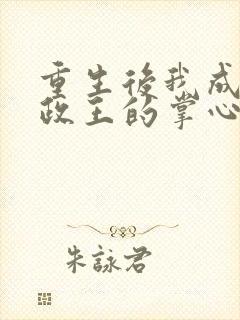 重生後我成
政王的掌心
朱詠君